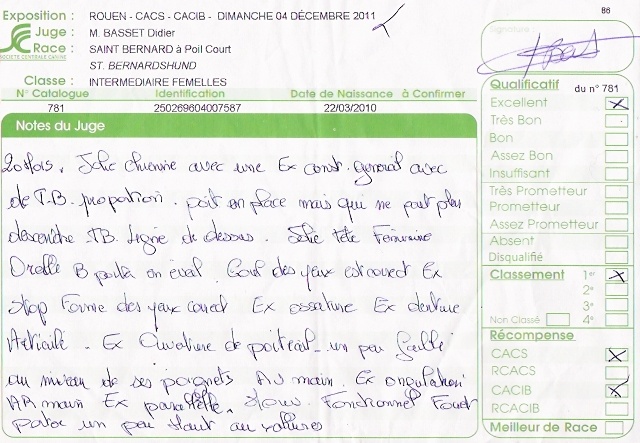 Exposition : ROUEN - CACS - CACIB - DIMANCHE 04 DÉCEMBRE 2011
Juge : M. BASSET Didier
Race : SAINT BERNARD à Poil Court
SOCIETE CENTRALE CANINE
ST. BERNARDSHUND
Classe : INTERMEDIAIRE FEMELLES
N° Catalogue Identification Date de Naissance à Confirmer
781 250269604007587 22/03/2010
Notes du Juge
20 Mois. Jolie chienne avec une Ex const. general avec
de T.B. proportion. poit en place mais qui ne peut plus
descendre. TB. Ligne de dessus. Jolie tête Feminine
Oreille B porté en éveil. Coul des yeux est correct Ex
stop Forme des yeux correct Ex ossature Ex denture
Articulé. Ex Ouverture de poitrail un peu faible
au niveau de ses poignets AV main. Ex angulation
AR main Ex parallèle. Fonctionnel Fouet
porté un peu Haut au allures
86
Signature :
Qualificatif du n° 781
Excellent
Très Bon
Bon
Assez Bon
Insuffisant
Très Prometteur
Prometteur
Assez Prometteur
Absent
Disqualifié
Classement 1er
2e
3e
Non Classé 4e
Récompense
CACS
RCACS
CACIB
RCACIB
Meilleur de Race